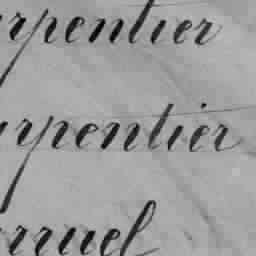 arpentier
arpentier
erruel